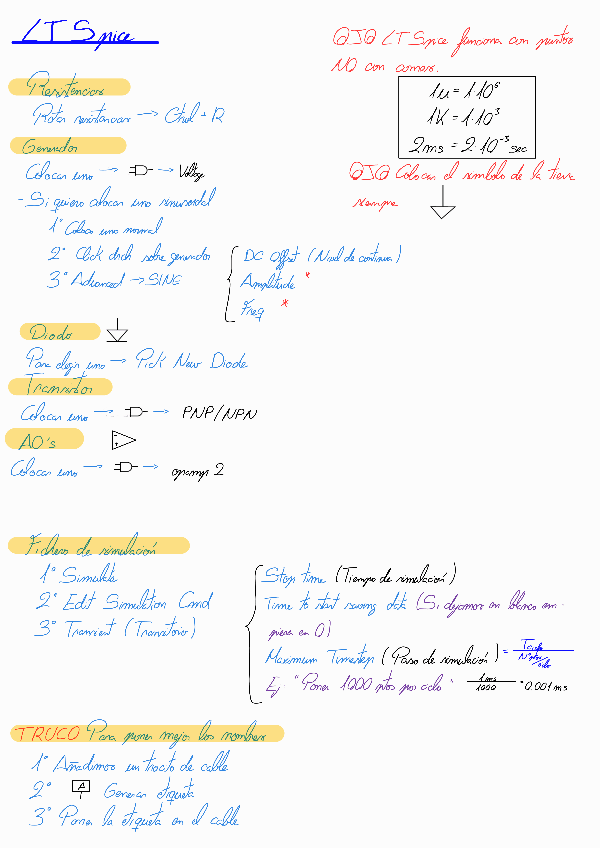 LTSpice
OJO LTSpice funciona con puntos
NO con comas.
1u = 1·10⁶
1K = 1·10³
2ms = 2·10⁻³ sec
OJO Colocar el simbolo de la tierra
siempre
Resistencias
Rotar resistencias → Ctrl + R
Generador
Colocar uno → → Voltage
- Si quiero colocar uno sinusoidal
1° Coloco uno normal
2° Click drch sobre generador
3° Advanced → SINE
DC Offset (Nivel de continua)
Amplitude *
Freq *
Diodo
Para elegir uno → Pick New Diode
Transistor
Colocar uno → → PNP/NPN
AO's
Colocar uno → → opamp 2
Fichero de simulación
1° Simulate
2° Edit Simulation Cmd
3° Transient (Transitorio)
Stop time (Tiempo de simulación)
Time to start saving data (Si dejamos en blanco em-
pieza en 0)
Maximum Timestep (Paso de simulación) = Tciclo / Nºptos/ciclo
Ej "Poner 1000 ptos por ciclo" 1ms/1000 = 0.001ms
TRUCO Para poner mejor los nombres
1° Añadimos un trocto de cable
2° A Generar etiqueta
3° Poner la etiqueta en el cable